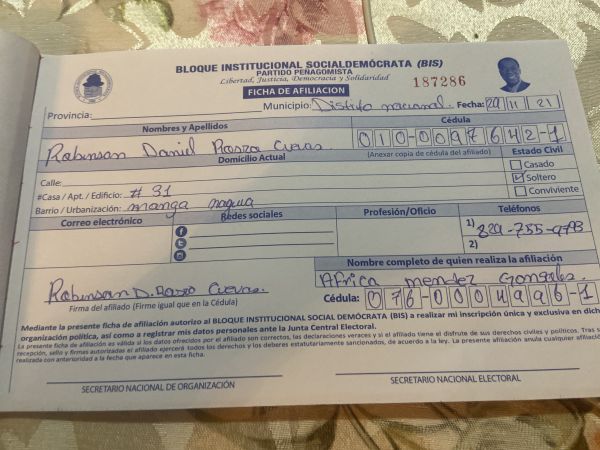 BLOQUE INSTITUCIONAL SOCIALDEMÓCRATA (BIS)
PARTIDO PENAGOMISTA
Libertad, Justicia, Democracia y Solidaridad
187286
FICHA DE AFILIACION
Provincia: Municipio: Distrito nacional. Fecha: 29 11 21
Nombres y Apellidos Cédula
Robinson Daniel Cuevas 010-0097642-1
Domicilio Actual (Anexar copia de cédula del afiliado) Estado Civil
Casado
Calle: Soltero
#Casa / Apt. / Edificio: # 31 Conviviente
Barrio / Urbanización: manga nagua
Correo electrónico Redes sociales Profesión/Oficio Teléfonos
1) 829-755-9793
2)
Nombre completo de quien realiza la afiliación
Robinson D. Cuevas. Africa mendez Gonzales.
Firma del afiliado (Firme igual que en la Cédula) Cédula: 076-0004996-1
Mediante la presente ficha de afiliación autorizo al BLOQUE INSTITUCIONAL SOCIAL DEMÓCRATA (BIS) a realizar mi inscripción única y exclusiva en dich
organización política, así como a registrar mis datos personales ante la Junta Central Electoral.
La presente ficha de afiliación es válida si los datos ofrecidos por el afiliado son correctos, las declaraciones veraces y si el afiliado tiene el disfrute de sus derechos civiles y políticos. Tras s
recepción, sello y firmas autorizadas el afiliado ejercerá todos los derechos y los deberes estatutariamente sancionados, de acuerdo a la ley. La presente afiliación anula cualquier afiliació
realizada con anterioridad a la fecha que aparece en esta ficha.
SECRETARIO NACIONAL DE ORGANIZACIÓN SECRETARIO NACIONAL ELECTORAL